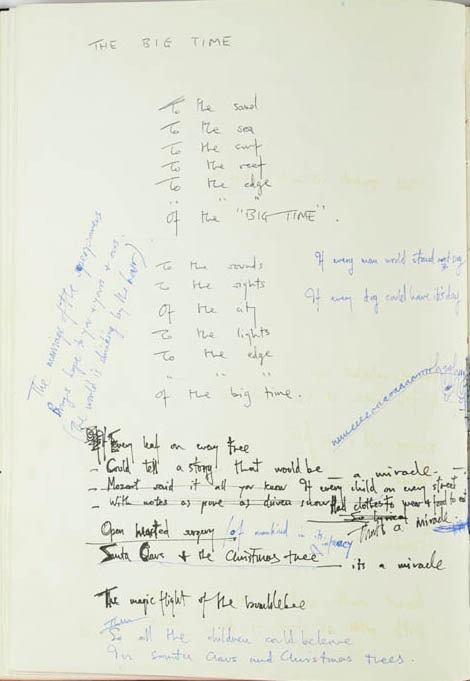 THE BIG TIME
To the sand
To the sea
To the surf
To the reef
To the edge
" " "
Of the "BIG TIME".
The message of the
Brings hope to you & yours & ours.
(the world is shrinking by the hour)
To the sounds
To the sights
Of the city
To the lights
To the edge
" " "
Of the big time.
If every man would stand
If every dog could have its day
If Every leaf on every tree
- Could tell a story that would be - a miracle -
- Mozart said it all you know If every child on every street
- With notes as pure as driven snow Had clothes to wear & food to eat
That's a miracle
Open hearted surgery (of mankind in its infancy
Santa Claus & the Christmas tree - its a miracle
The magic flight of the bumblebee
Then
So all the children could believe
In Santa Claus and Christmas trees.